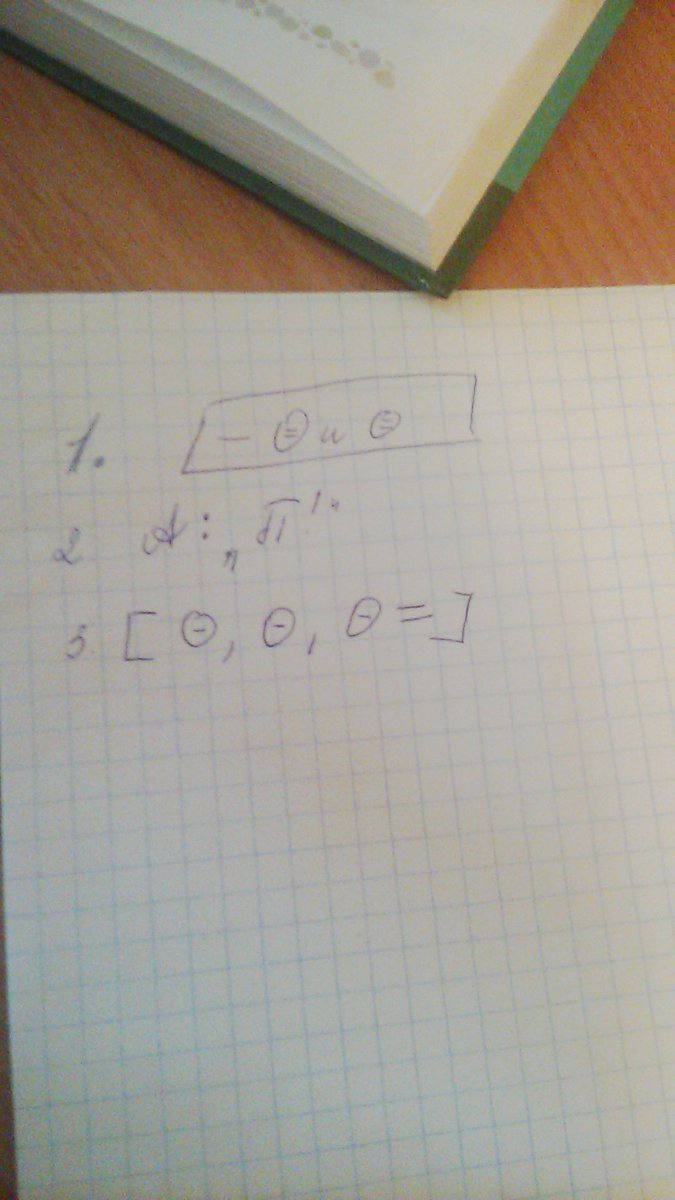 1. [— ⊖ и ⊖]
2 А: „П!“
3. [⊖, ⊖, ⊖ =]